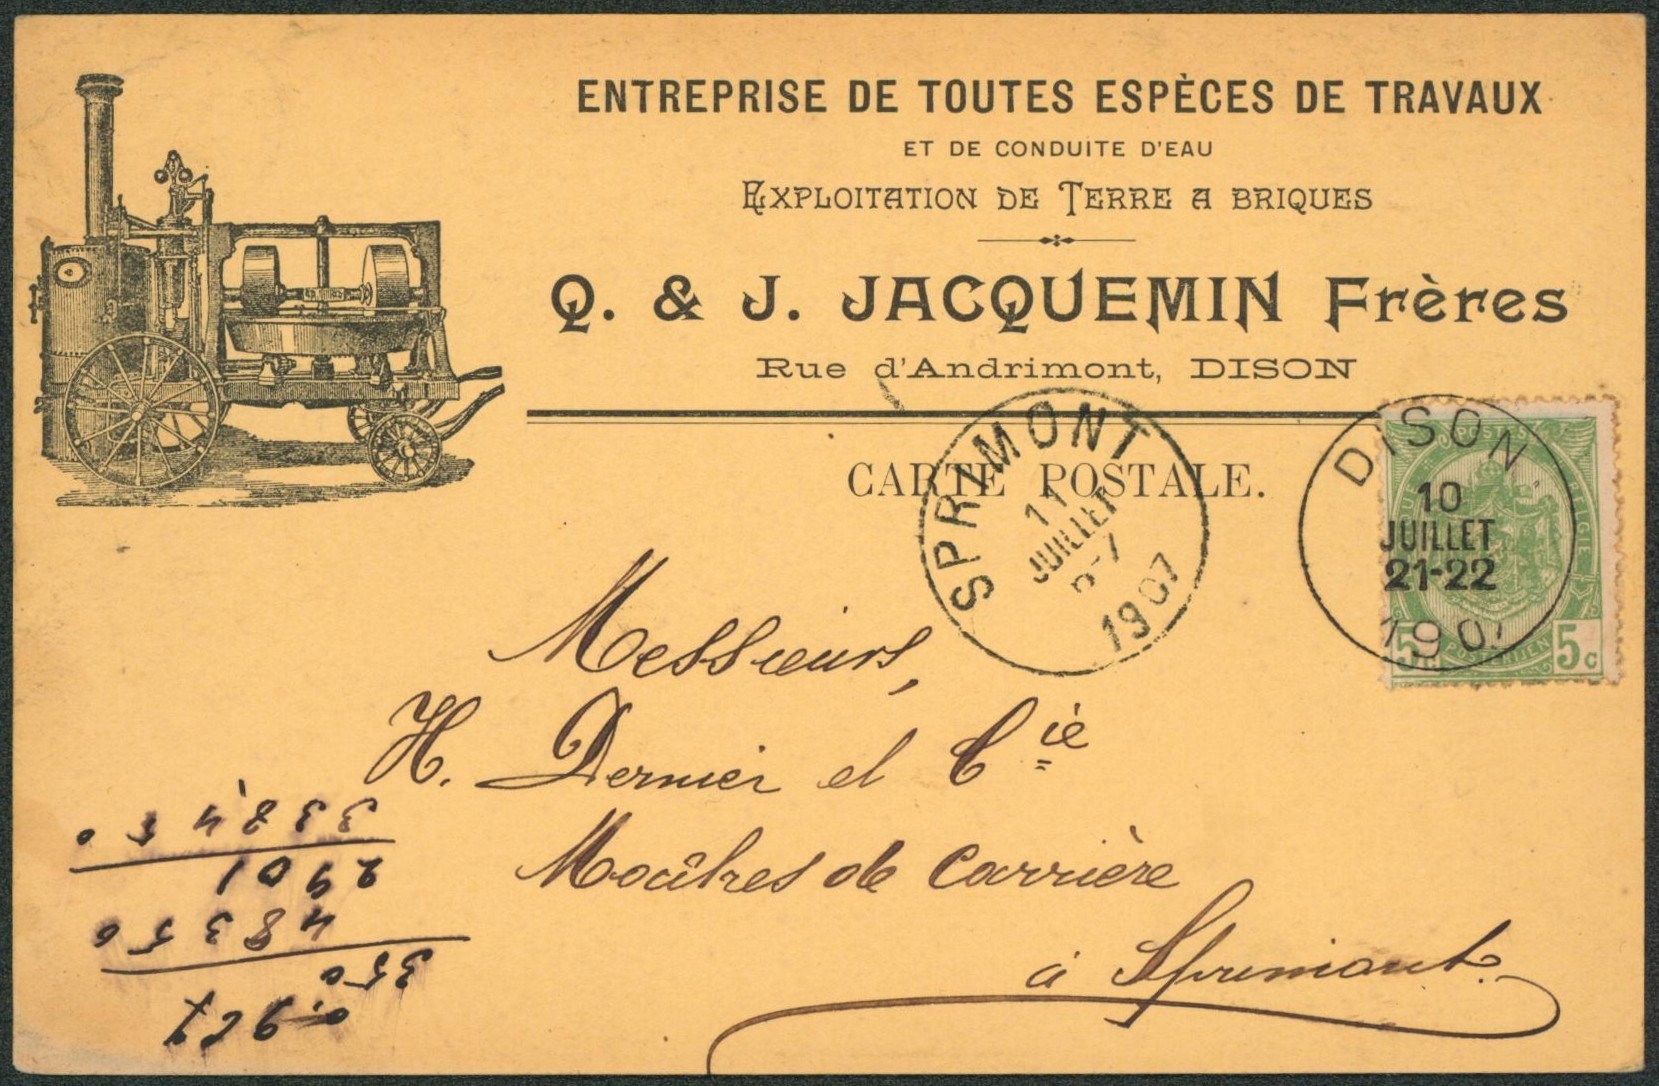 ENTREPRISE DE TOUTES ESPÈCES DE TRAVAUX
ET DE CONDUITE D'EAU
EXPLOITATION DE TERRE A BRIQUES
Q. & J. JACQUEMIN Frères
Rue d'Andrimont, DISON
CARTE POSTALE.
SPRIMONT
11
JUILLET
1907
DISON
10
JUILLET
21-22
190
POSTES
5c 5c
Messieurs,
H. Dernier et Cie
Maîtres de Carrière
à Sprimont.
0,967
350
48350
2901
338,450